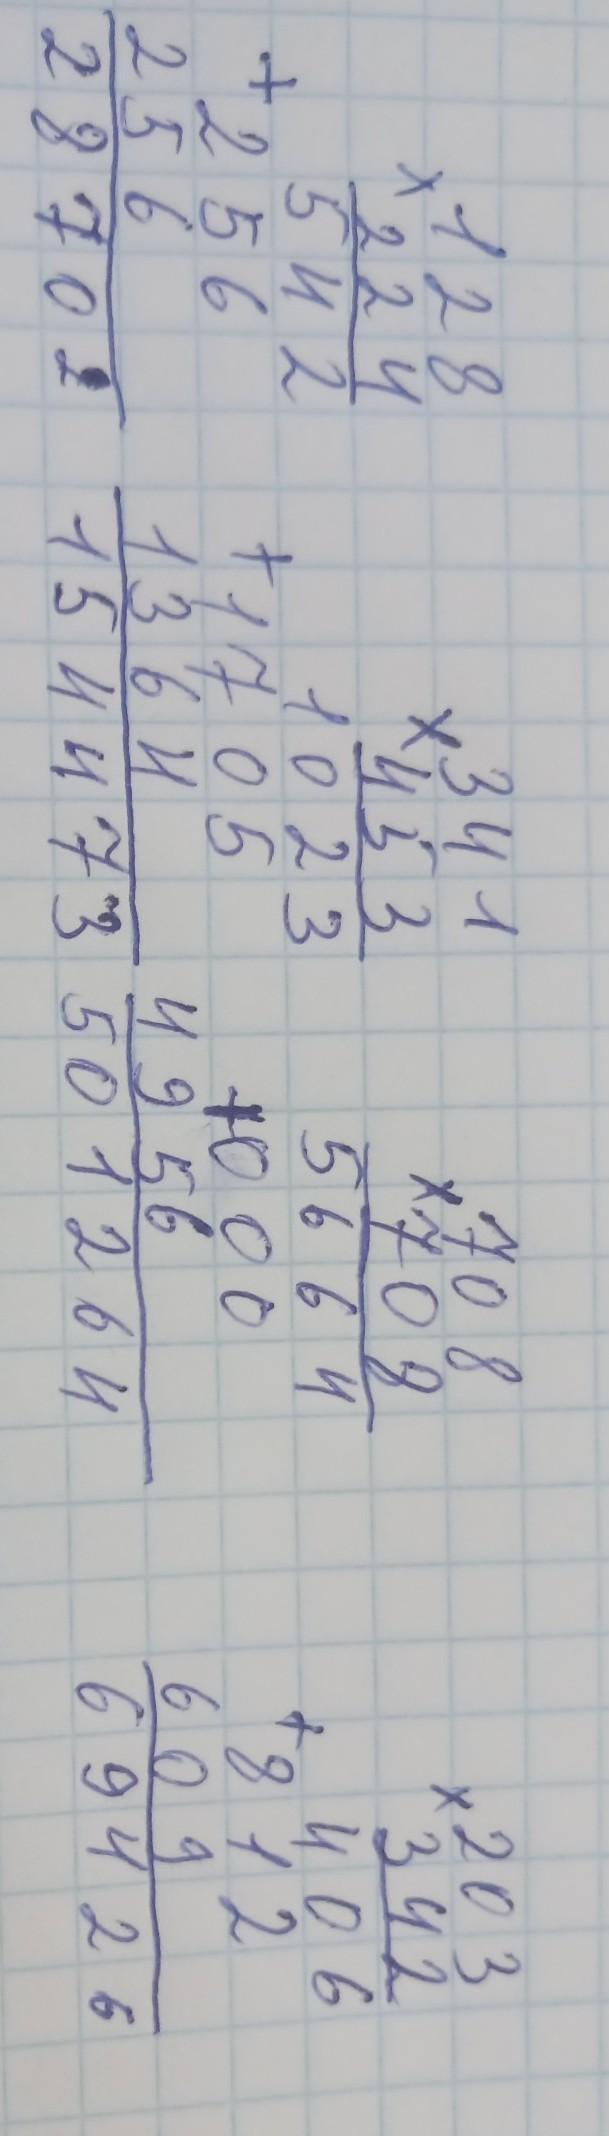 × 128
224
542
+ 256
256
28702
× 341
453
1023
+ 1705
1364
154473
× 708
708
5664
+ 000
4956
501264
× 203
342
406
+ 812
609
69426